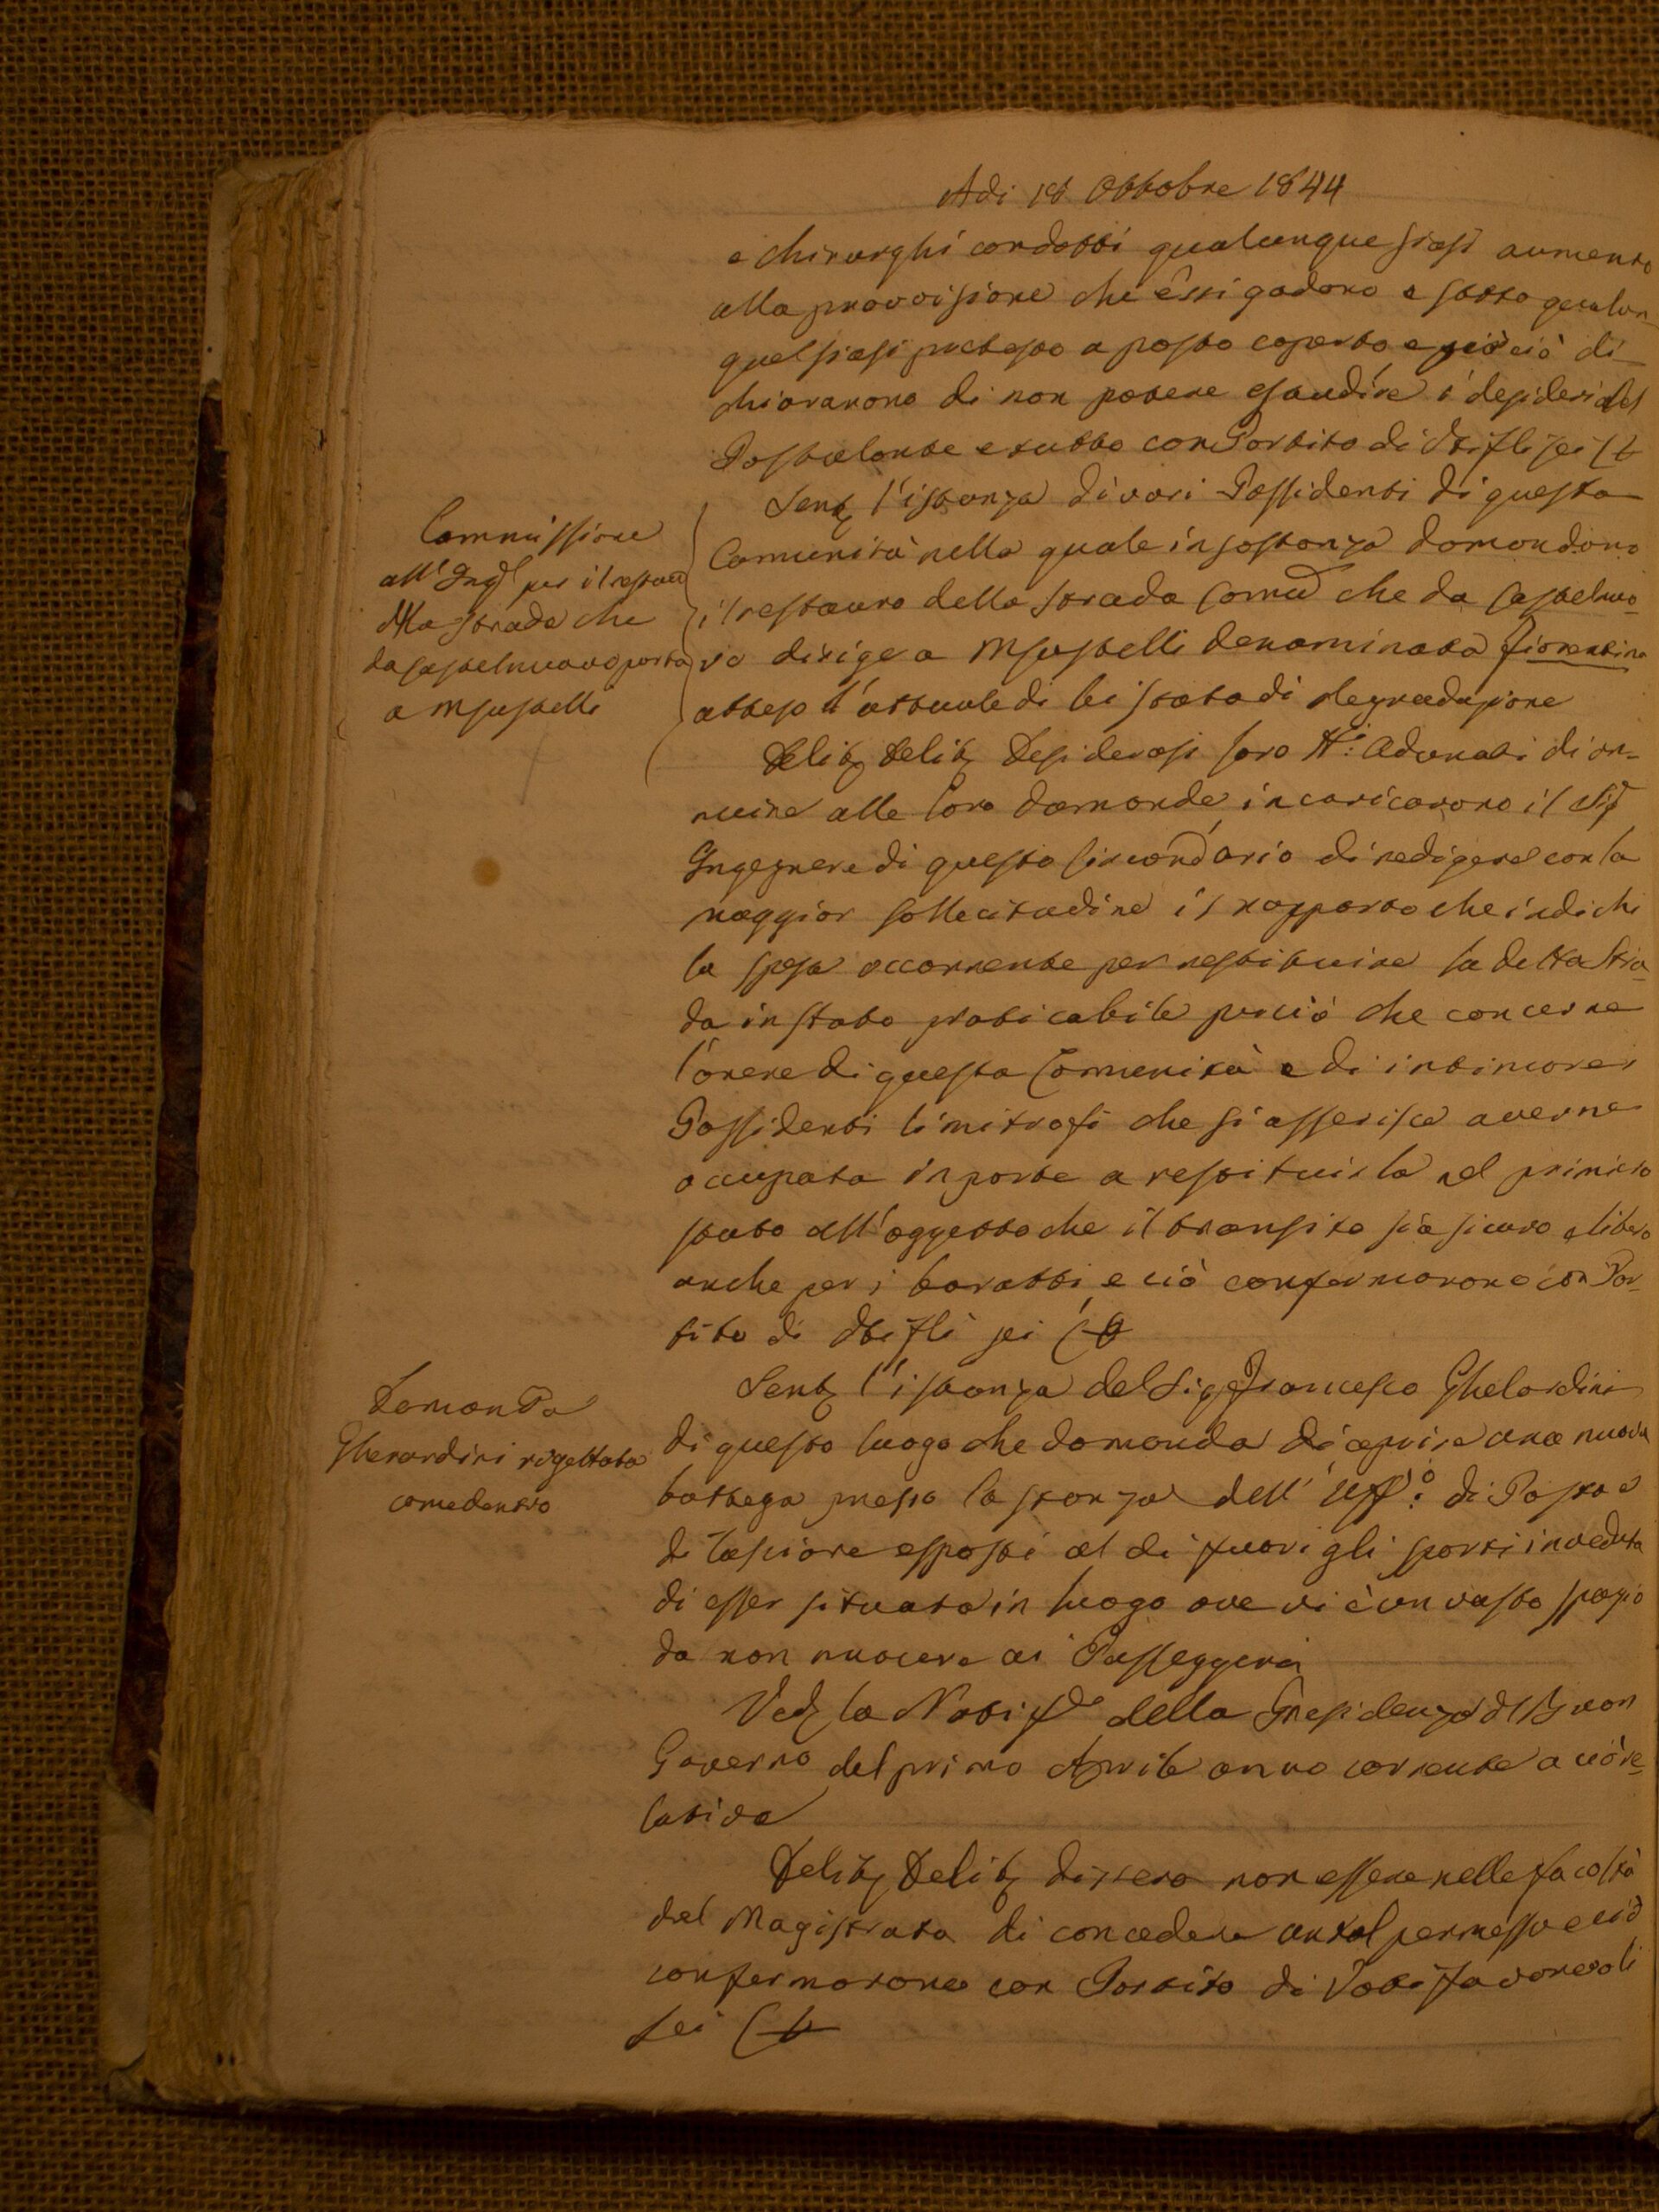 Adi 18 Ottobre 1844
e Chirurghi condotti qualunque siasi aumento
alla provvisione che essi godono e sotto qualun-
quelsiasi pretesto a posto coperto e ciò di-
chiararono di non potere esaudire i desideri del
Postulante e tutto con Partito di Vti fli sei
Sentz l'istanza di vari Possidenti di questa
Comunità nella quale in sostanza domandano
il restauro della Strada Comu che da Castelnuo-
vo dirige a Msustelli denominata fiorentina
atteso l'attuale di lei stato di degradazione
Delibz Delibz Desiderosi loro Ai: Adunati di an-
nuire alle loro domande, incaricarono il Sig
Ingegnere di questo Circondario di redigere con la
maggior sollecitudine il rapporto che indichi
la spesa occorrente per restituire la detta Stra-
da in stato praticabile per ciò che concerne
l'onere di questa Comunità e di intimare i
Possidenti limitrofi che si asserisce averne
occupata in parte a restituirla nel primiero
stato all'oggetto che il transito sia sicuro e libero
anche per i barocci e ciò confermarono con Par-
tito di Vti fli sei
Sentz l'istanza del Sige Francesco Ghelardini
di questo luogo che domanda di aprire una nuova
bottega presso la stanza dell' Uffo: di Posta e
di lasciare esposti al di fuori gli sporti in veduta
di esser situata in luogo ove vi è un vasto spazio
da non nuocere ai Passeggeri
Vedz la della Presidenza del Buon
Governo del primo Aprile anno corrente a ciò re-
lativa
Delibz Delibz dissero non essere nelle facoltà
del Magistrato di concedere un tal permesso e ciò
confermarono con Partito di Voti favorevoli
sei
Commissione
all' Inge per il restauro
della Strada che
da Castelnuovo porta
a Msustelli
Domanda
Gherardini rigettata
come dentro